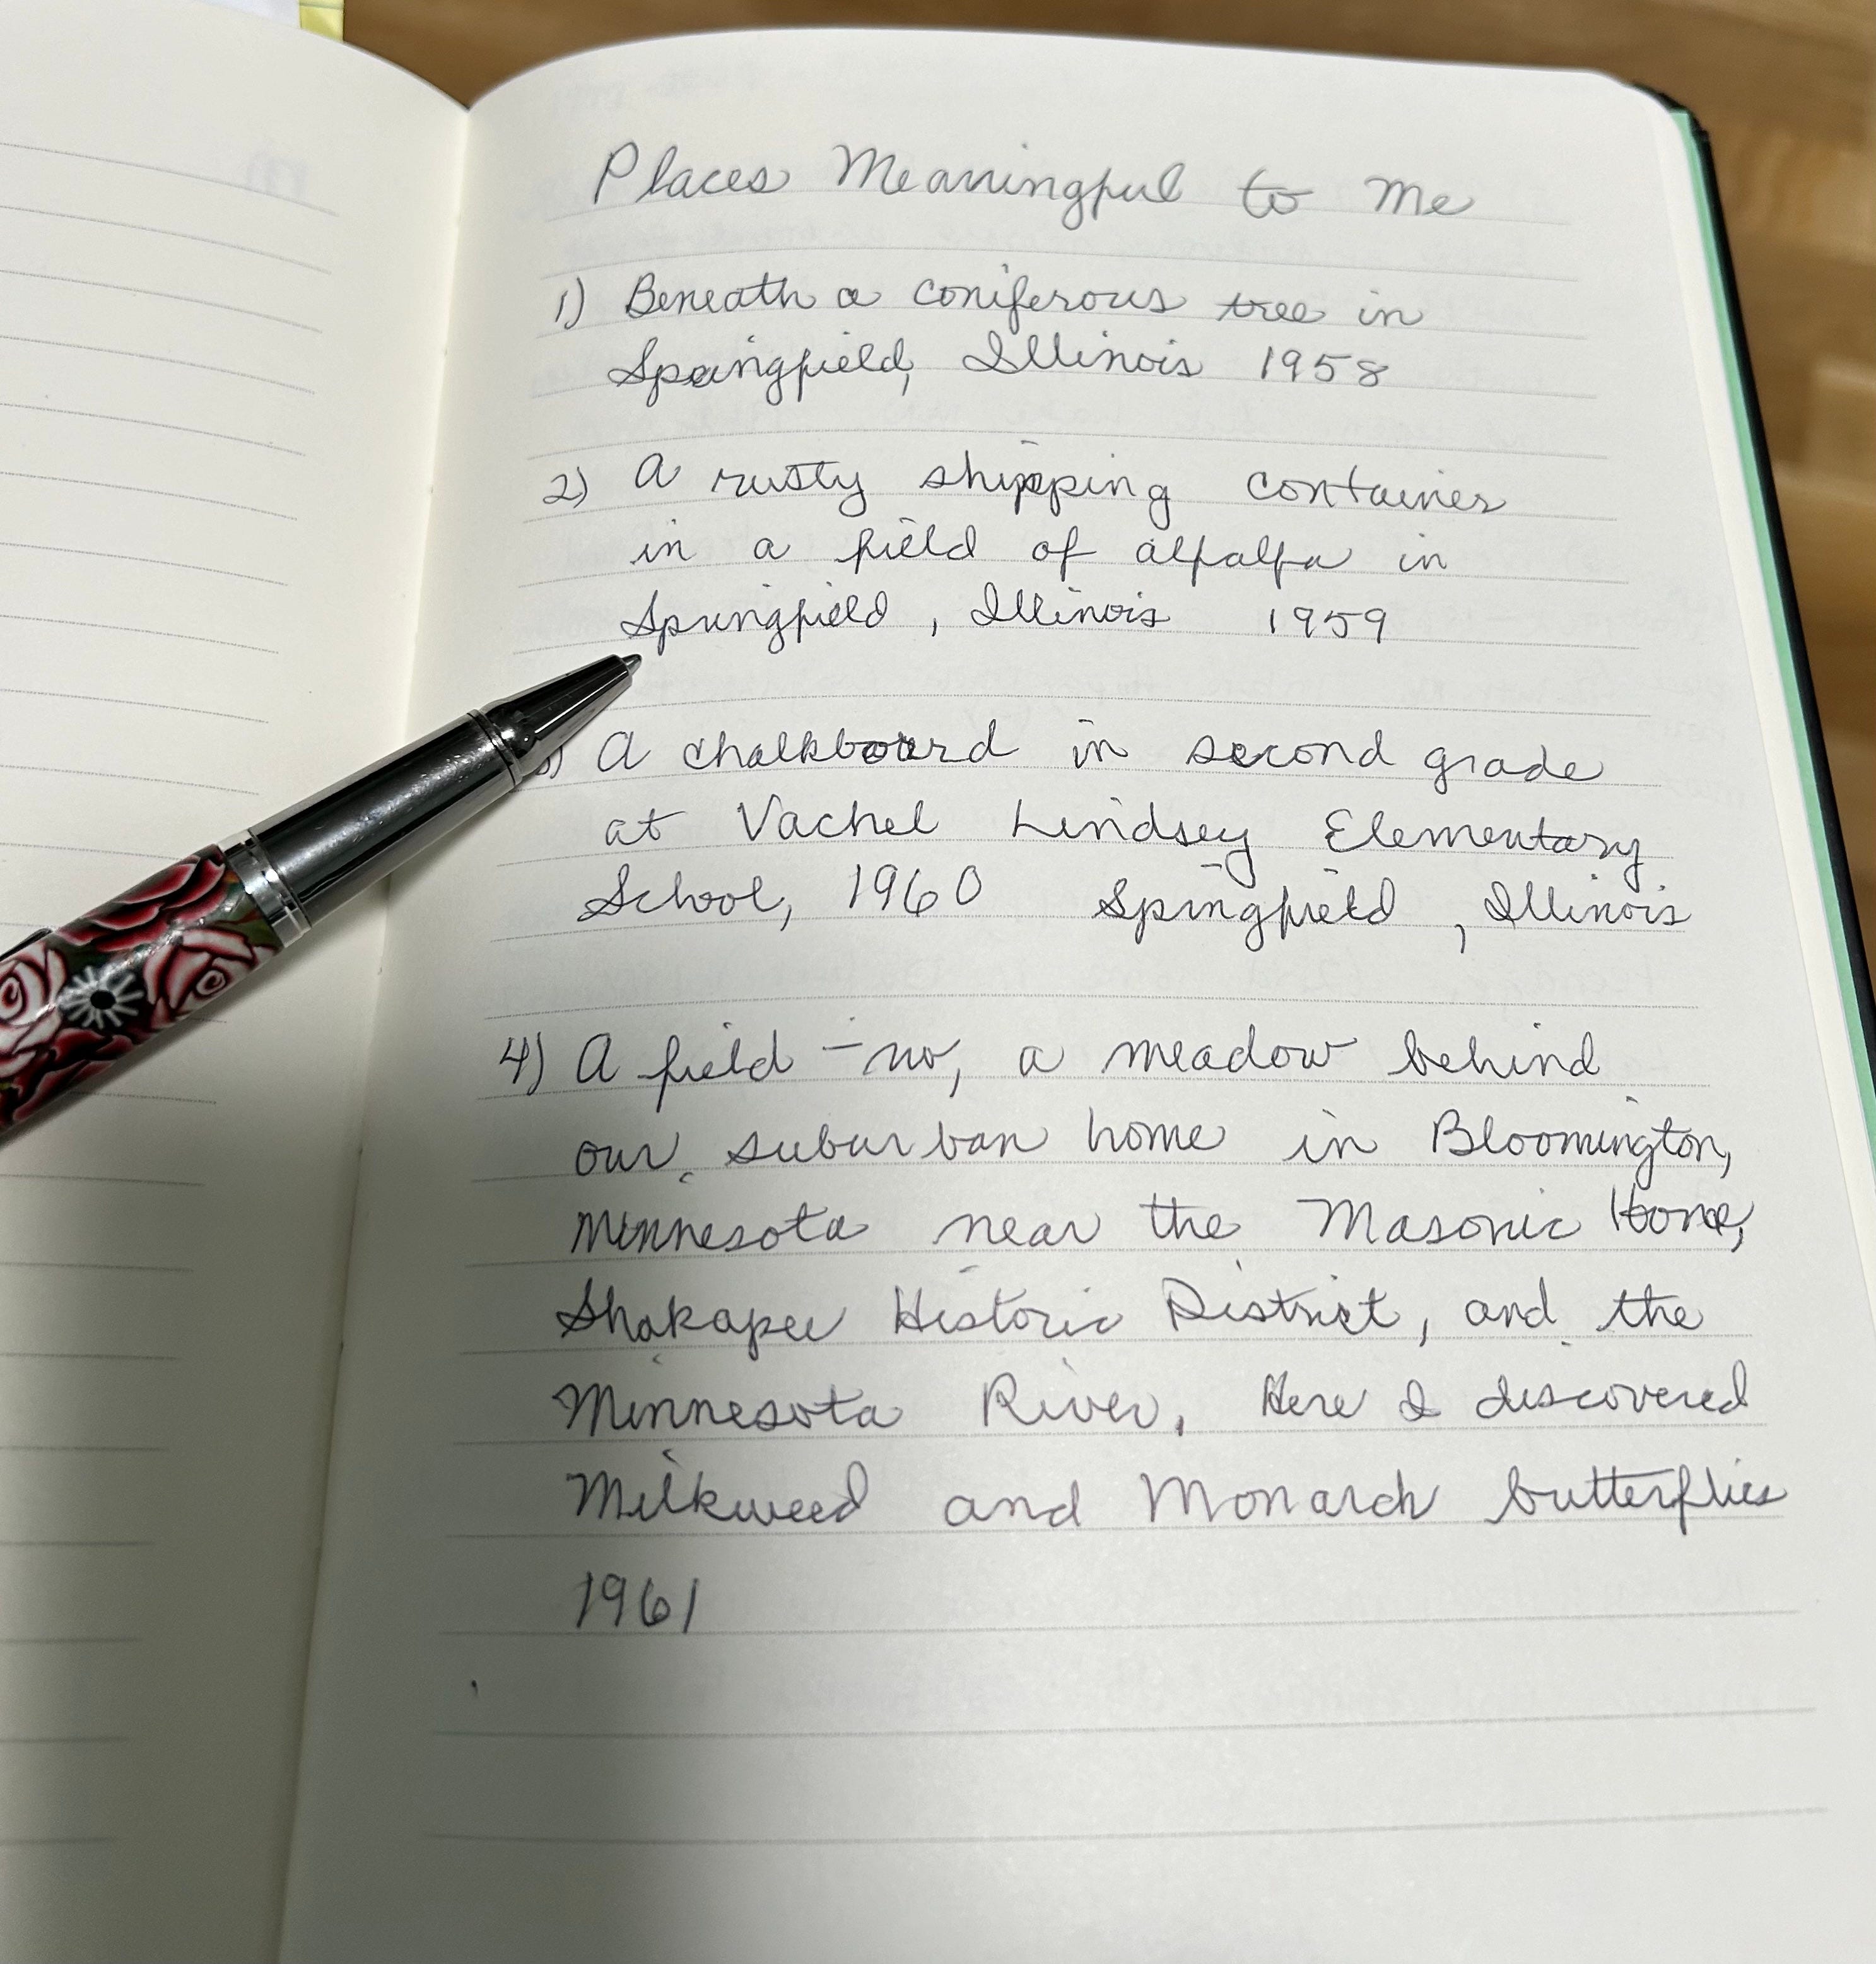 Places Meaningful to Me
1) Beneath a coniferous tree in
Springfield, Illinois 1958
2) A rusty shipping container
in a field of alfalfa in
Springfield, Illinois 1959
3) A chalkboard in second grade
at Vachel Lindsey Elementary
School, 1960 Springfield, Illinois
4) A field - no, a meadow behind
our suburban home in Bloomington,
Minnesota near the Masonic Home,
Shakapee Historic District, and the
Minnesota River. Here I discovered
Milkweed and Monarch butterflies
1961